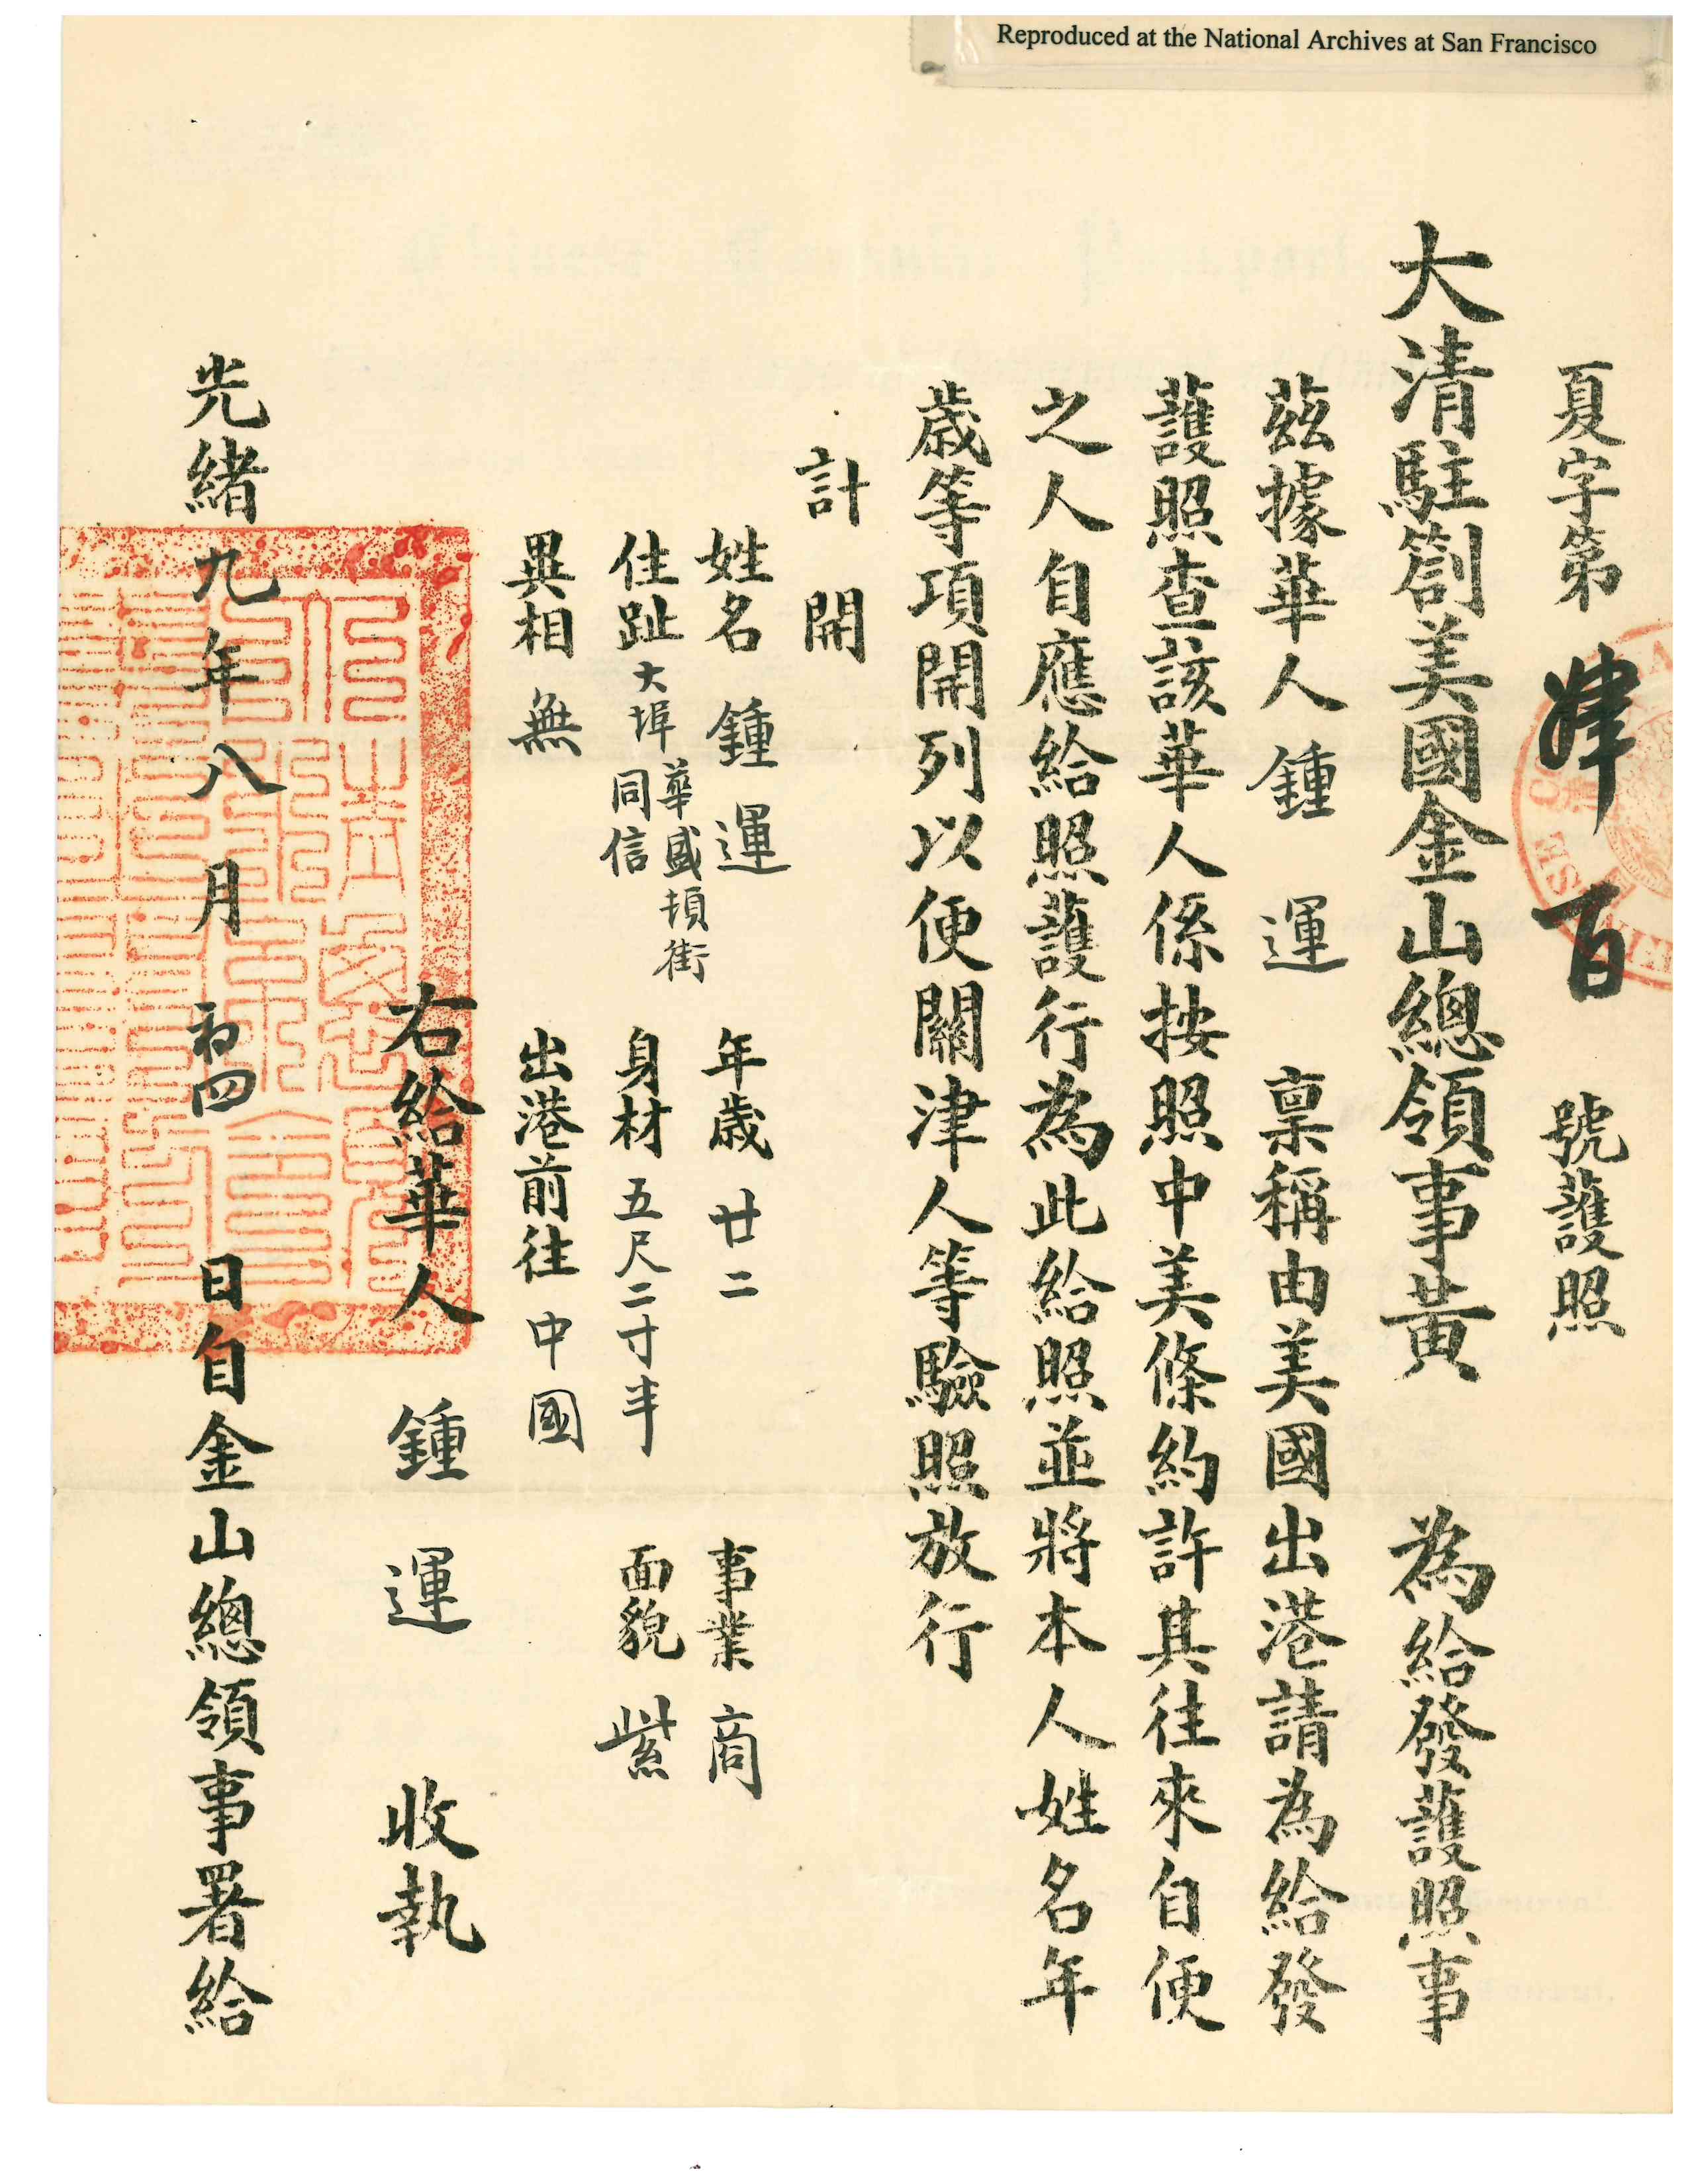 Reproduced at the National Archives at San Francisco
夏字第肆百號護照
大清駐劄美國金山總領事黃為給發護照事
茲據華人鍾運稟稱由美國出港請為給發
護照查該華人係按照中美條約許其往來自便
之人自應給照護行為此給照並將本人姓名年
歲等項開列以便關津人等驗照放行
計開
姓名鍾運 年歲廿二 事業商
住趾大埠華盛頓街同信 身材五尺二寸半 面貌紫
異相無 出港前往中國
右給華人鍾運收執
光緒九年八月初四日自金山總領事署給